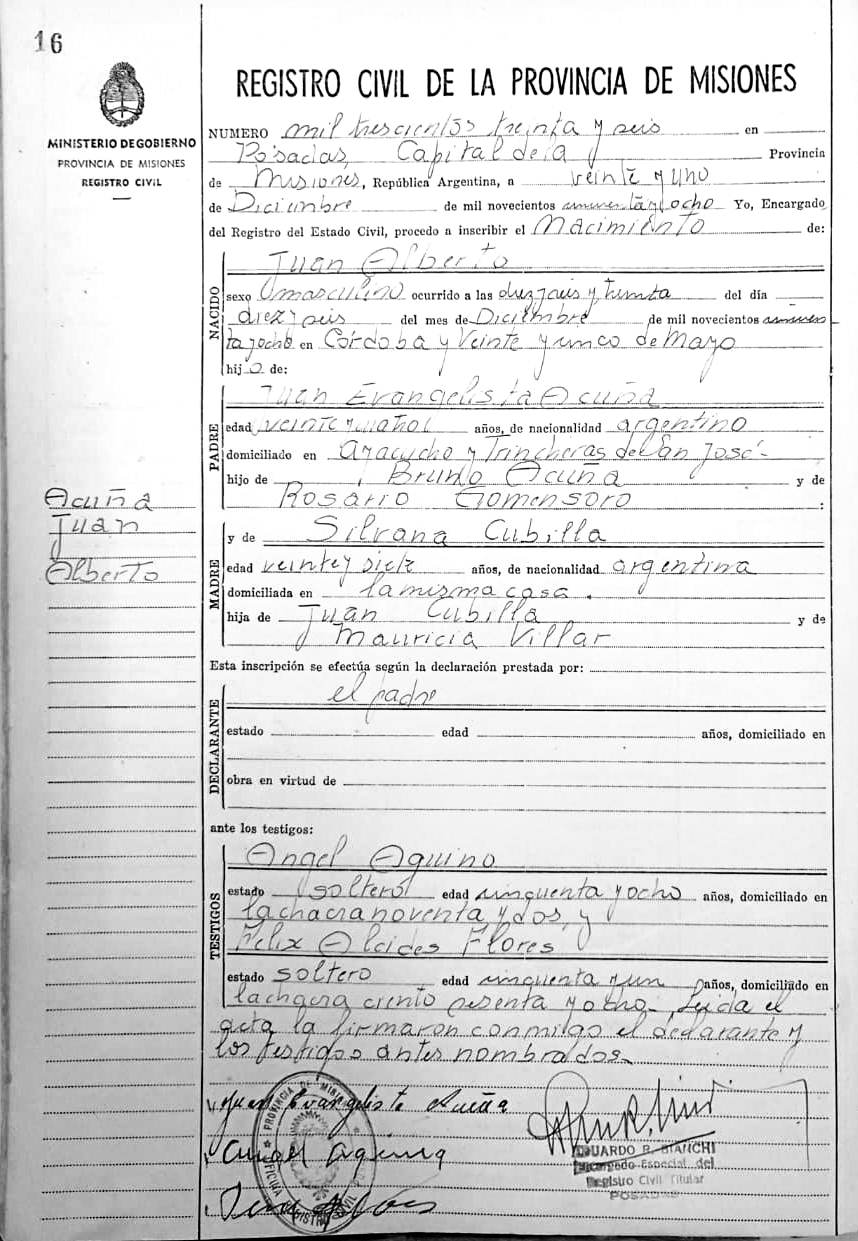 16
MINISTERIO DE GOBIERNO
PROVINCIA DE MISIONES
REGISTRO CIVIL
REGISTRO CIVIL DE LA PROVINCIA DE MISIONES
NUMERO mil trescientos treinta y seis en
Posadas, Capital de la Provincia
de Misiones, República Argentina, a veinte y uno
de Diciembre de mil novecientos cincuenta y ocho Yo, Encargado
del Registro del Estado Civil, procedo a inscribir el Nacimiento de:
NACIDO
Juan Alberto
sexo masculino ocurrido a las diez y seis y treinta del día
diez y seis del mes de Diciembre de mil novecientos cincuen
ta y ocho en Córdoba y Veinte y cinco de Mayo
hijo de:
PADRE
Juan Evangelista Acuña
edad veinte y años, de nacionalidad argentino
domiciliado en Ayacucho y Trincheras de San José-
hijo de Bruno Acuña y de
Rosario Gomensoro :
MADRE
y de Silvana Cubilla
edad veinte y siete años, de nacionalidad argentina
domiciliada en la misma casa.
hija de Juan Cubilla y de
Mauricia Villar
Acuña
Juan
Alberto
Esta inscripción se efectúa según la declaración prestada por:
DECLARANTE
el padre
estado edad años, domiciliado en
obra en virtud de
ante los testigos:
TESTIGOS
Angel Aquino
estado soltero edad cincuenta y ocho años, domiciliado en
la chacra noventa y dos, y
Felix Alcides Flores
estado soltero edad cincuenta y un años, domiciliado en
la chacra ciento sesenta y ocho- Leida el
acta la firmaron conmigo el declarante y
los testigos antes nombrados.
Juan Evangelista Acuña
Angel Aquino
PROVINCIA DE MISIONES
OFICINA REGISTRO CIVIL
EDUARDO R. BIANCHI
Encargado Especial del
Registro Civil Titular
POSADAS